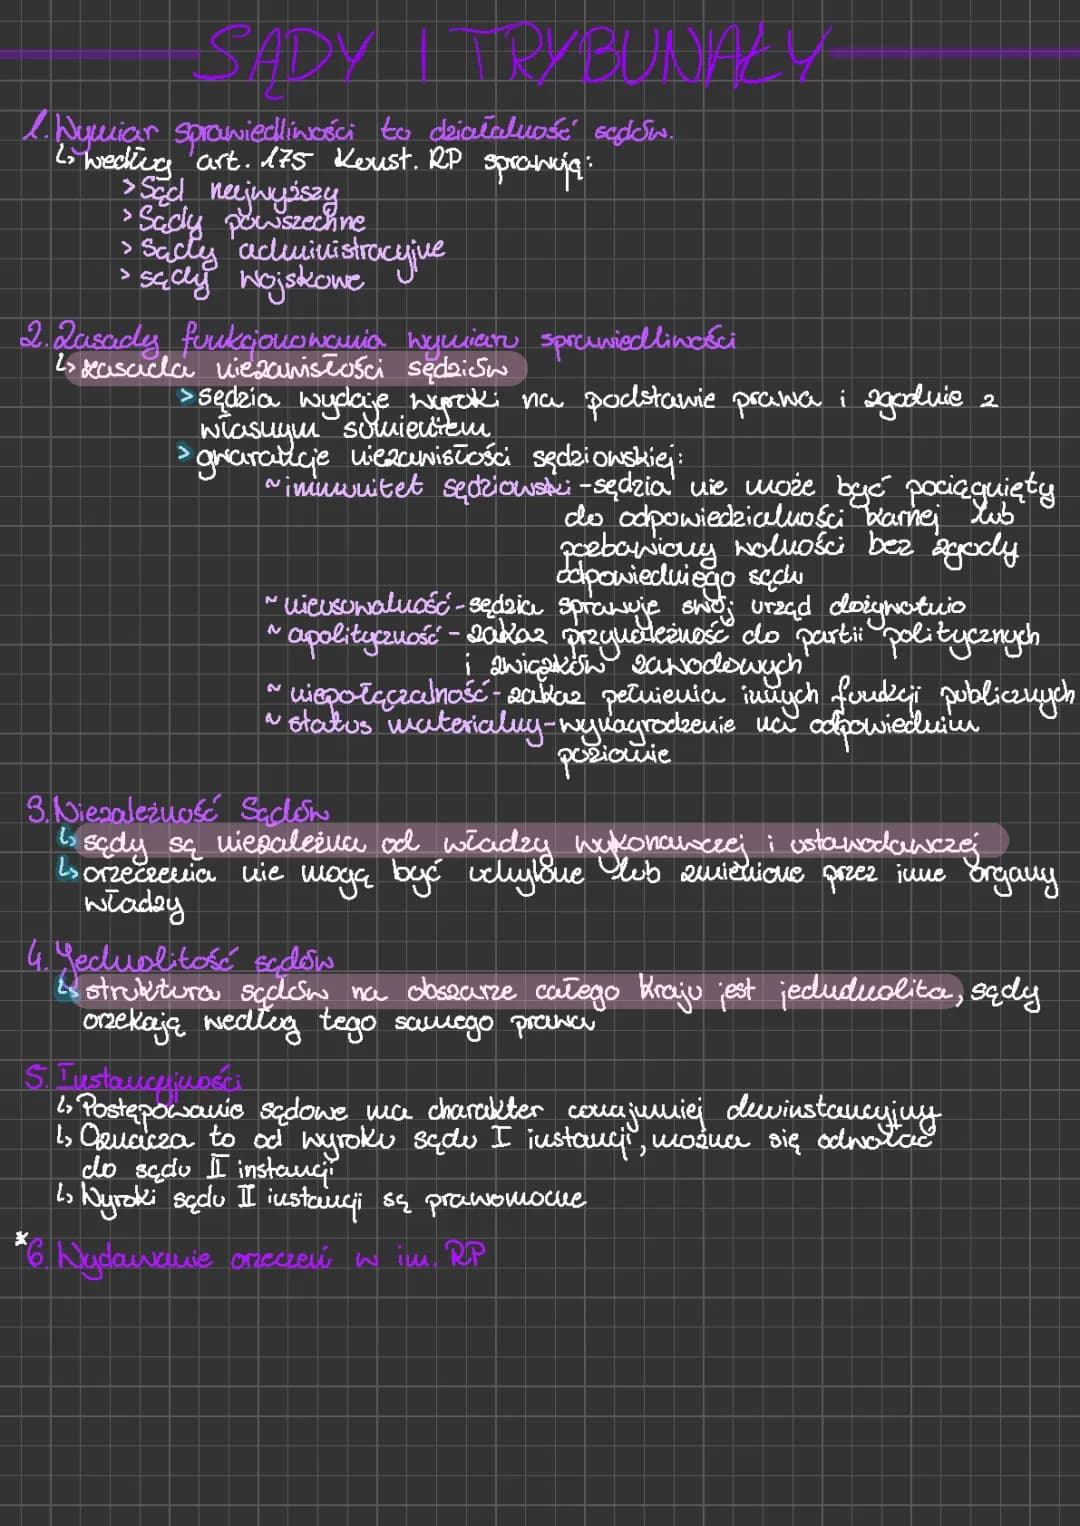 SĄDY I TRYBUNAŁY
1. Wymiar sprawiedliwości to działalność sądów.
↳ według art. 175 Konst. RP sprawują:
> Sąd najwyższy
> Sądy powszechne
> sądy administracyjne
> sądy wojskowe
2. Zasady funkcjonowania wymiaru sprawiedliwości
↳ zasada niezawisłości sędziów
> sędzia wydaje wyroki na podstawie prawa i zgodnie z
własnym sumieniem
> gwarancje niezawisłości sędziowskiej:
~ immunitet sędziowski - sędzia nie może być pociągnięty
do odpowiedzialności karnej lub
pozbawiony wolności bez zgody
odpowiedniego sądu
~ nieusuwalność - sędzia sprawuje swój urząd dożywotnio
~ apolityczność - zakaz przynależność do partii politycznych
i związków zawodowych
~ niepołączalność - zakaz pełnienia innych funkcji publicznych
~ status materialny - wynagrodzenie na odpowiednim
poziomie
3. Niezależność Sądów
↳ sądy są niezależna od władzy wykonawczej i ustawodawczej
↳ orzeczenia nie mogą być uchylone lub zmienione przez inne organy
władzy
4. Jednolitość sądów
↳ struktura sądów na obszarze całego kraju jest jednduolita, sądy
orzekają według tego samego prawa
5. Instancyjności
↳ Postępowanie sądowe ma charakter conajmniej dwuinstancyjny
↳ Oznacza to od wyroku sądu I instancji, można się odwołać
do sądu II instancji
↳ Wyroki sądu II instancji są prawomocne
* 6. Wydawanie orzeczeń w im. RP